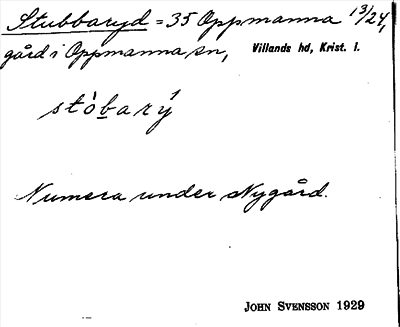 Stubbaryd = 35 Oppmanna 1 3/24,
gård i Oppmanna sn, Villands hd, Krist. l.
stòb̲arý
Numera under Nygård.
JOHN SVENSSON 1929